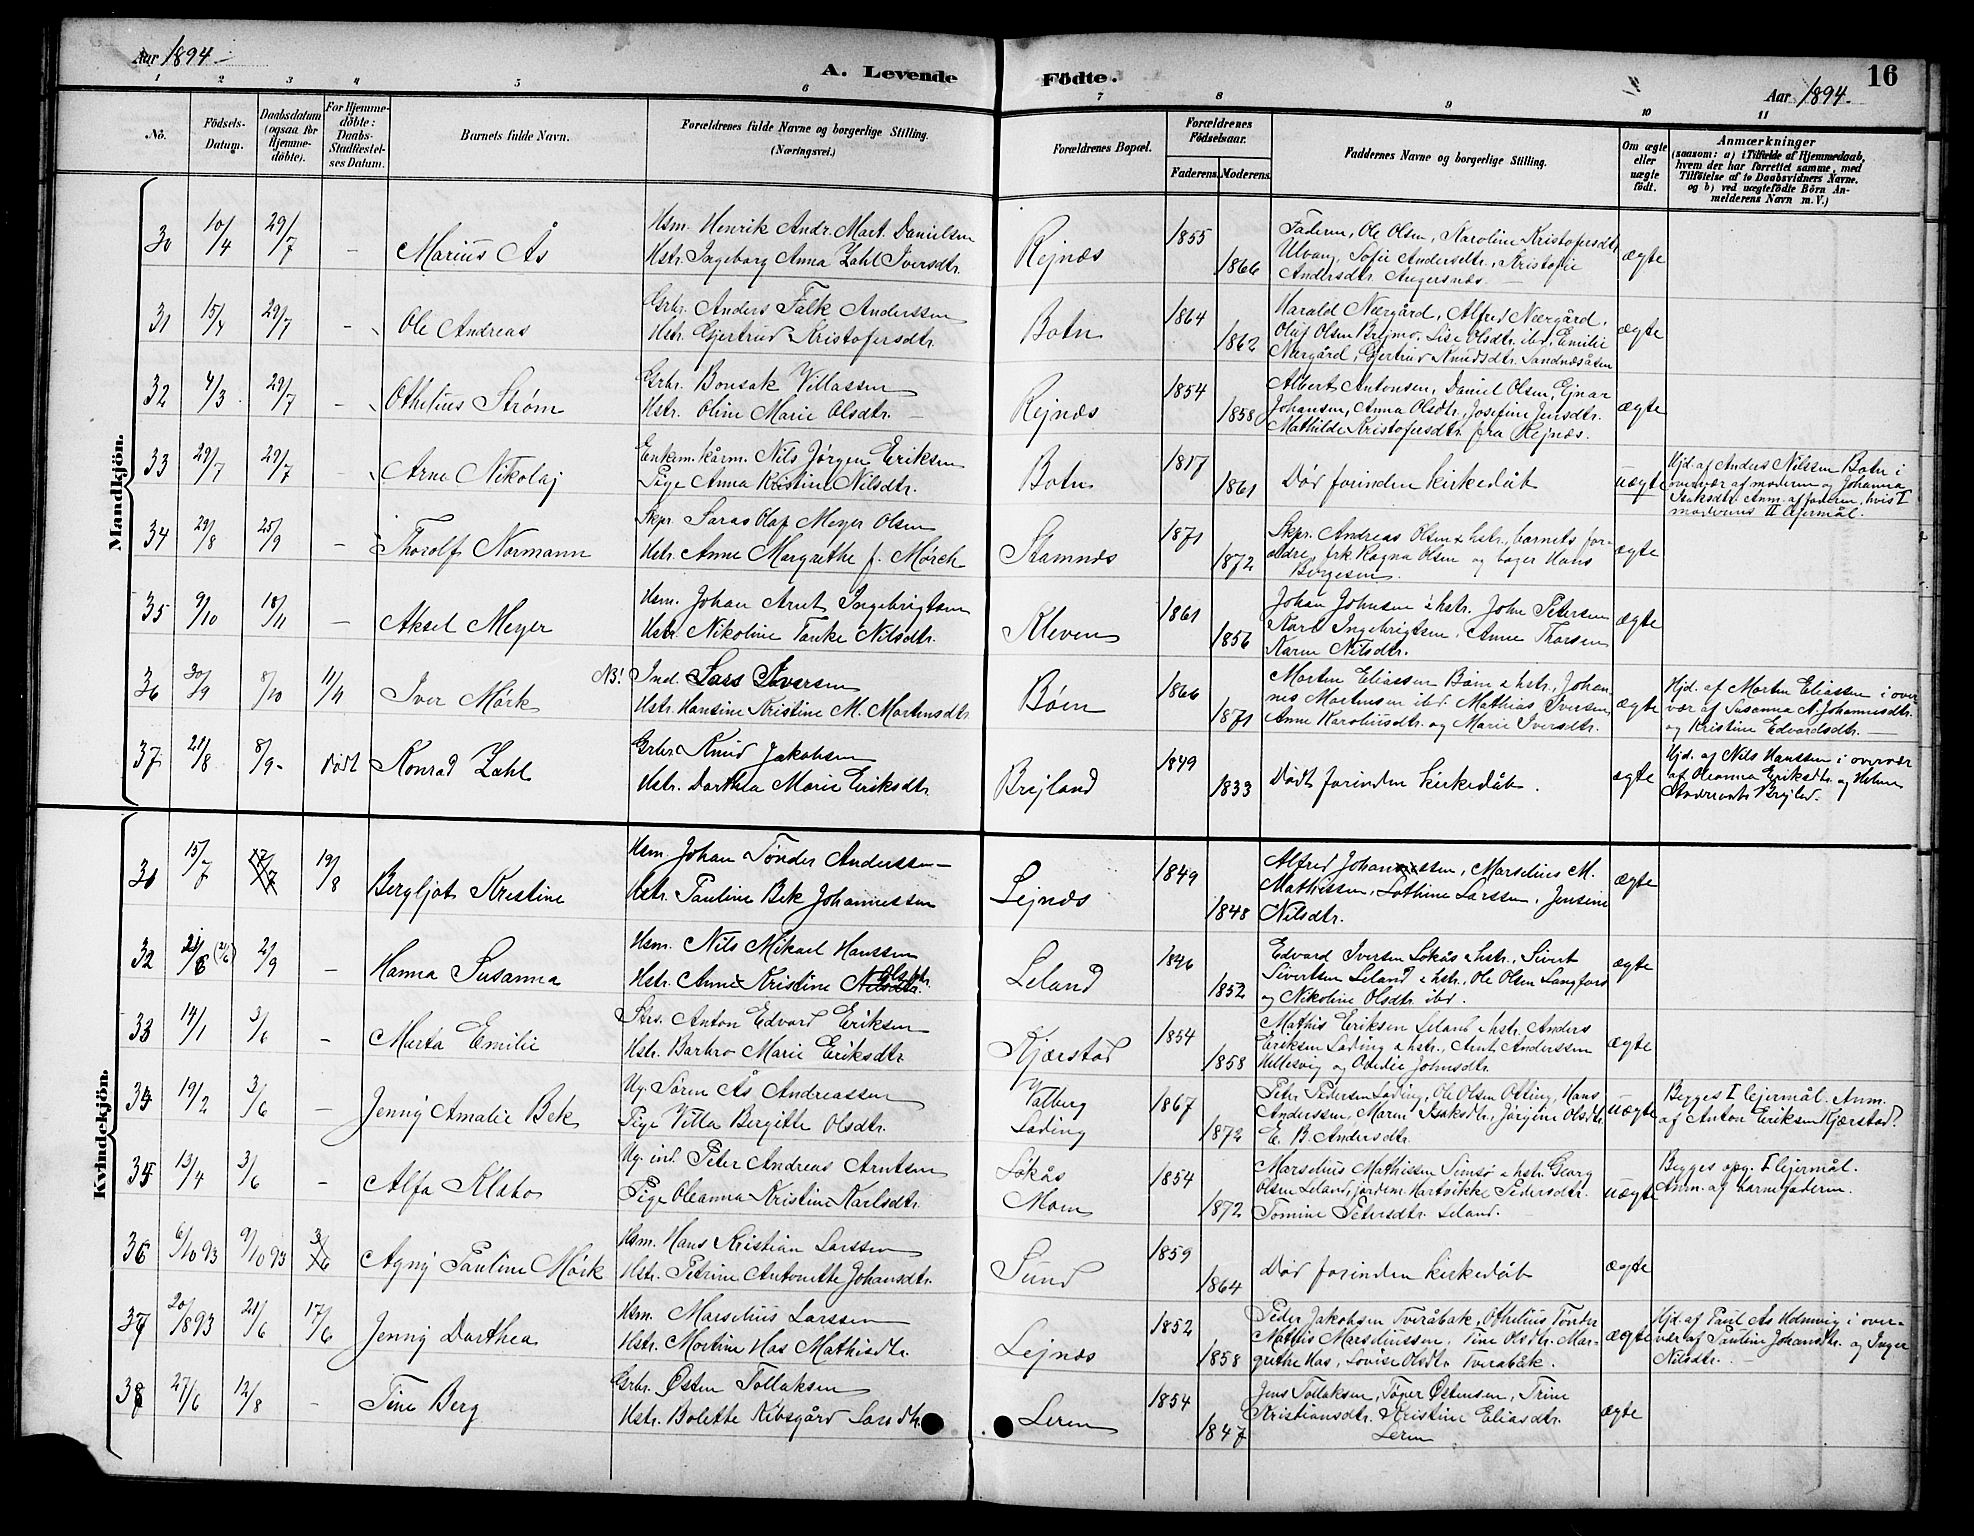 Aar 1894.
A. Levende Födte.
16
Aar 1894.
1 2 3 4 5 6 7 8 9 10 11
No.
Födsels-Datum.
Daabsdatum (ogsaa for Hjemme-döbte).
For Hjemme-döbte: Daabs-Stadfæstel-ses Datum.
Barnets fulde Navn.
Forældrenes fulde Navne og borgerlige Stilling. (Næringsvei.)
Forældrenes Bopæl.
Forældrenes Födselsaar.
Faderens. Moderens.
Faddernes Navne og borgerlige Stilling.
Om ægte eller uægte födt.
Anmærkninger
(saasom: a) i Tilfælde af Hjemmedaab, hvem der har forrettet samme, med Tilföielse af to Daabsvidners Navne. og b) ved uægtefödte Börn Anmelderens Navn m. V.)
Mandkjön.
30 10/4 29/7 - Marius Ås
Hsm. Henrik Andr. Mart. Danielsen
Hstr. Ingeborg Anna Zahl Iversdtr.
Rejnæs 1855 1866
Faderen, Ole Olsen, Karoline Kristofersdtr
Ulvang, Sofie Andersdtr., Kristofie
Andersdtr. Angersnæs.
ægte
31 15/4 29/7 - Ole Andreas
Grbr. Anders Falk Anderssen
Hstr. Gjertrud Kristofersdtr.
Botn 1864 1862
Harald Nærgård, Alfred Nærgård,
Oluf Olsen Brejmo, Lise Olsdtr. ibd, Emilie
Nærgård, Gjertrud Knudsdtr. Sandnæsåsen
ægte
32 4/3 29/7 - Othelius Strøm
Grbr. Bonsak Villassen
Hstr. Oline Marie Olsdtr.
Rejnæs 1854 1858
Albert Antonsen, Daniel Olsen, Ejnar
Johansen, Anna Olsdtr., Josefine Jensdtr.
Mathilde Kristofersdtr. fra Rejnæs.
ægte
33 29/7 29/7 - Arne Nikolaj
Enkem. kårm. Nils Jørgen Eriksen
Pige Anna Kristine Nilsdtr.
Botn 1817 1861
Død forinden kirkedåb
uægte
Hjd. af Anders Nilssen Botn i
overvær af moderen og Johanna
Isaksdtr. Anm. af faderen, hvis I
moderens II lejermål.
34 29/8 25/9 - Thorolf Normann
Skpr. Saras Olaf Meyer Olsen
Hstr. Anne Margrethe f. Mørch
Stamnes 1871 1872
Skpr. Andreas Olsen & hstr., barnets for-
ældre, frk Ragna Olsen og bager Hans
Birgesen.
ægte
35 9/10 18/11 - Aksel Meyer
Hsm. Johan Arnt Ingebrigtsen
Hstr. Nikoline Tanke Nilsdtr.
Kleven 1861 1856
Johan Johnsen & hstr. John Petersen
Karl Ingebrigtsen, Anne Thorsen
Karen Nilsdtr.
ægte
36 30/9 8/10 11/11 Iver Mørk
NB! Ind. Lars Iversen
Hstr. Hansine Kristine M. Mortensdtr.
Bøen 1866 1871
Morten Eliassen Bøen & hstr. Johan-
nes Mortensen ibd. Mathias Iversen
Anne Karoliusdtr. og Marie Iversdtr.
ægte
Hjd. af Morten Eliassen i over
vær af Susanna N. Johannesdtr.
og Kristine Edvardsdtr.
37 21/8 8/9 dødt Konrad Zahl
Grbr. Knud Jakobsen
Hstr. Dorthea Marie Eriksdtr.
Brejland 1849 1833
Dødt forinden kirkedåb.
ægte
Hjd. af Nils Hanssen i overvær
af Oleanna Eriksdtr. og
Kvindekjön.
31 15/7 19/8 Bergljot Kristine
Hsm Johan Tønder Anderssen
Hstr. Pauline Bek Johannessen
Lejnæs 1849 1848
Alfred Johannessen, Marselius M.
Mathissen, Lothine Larssen, Jensine
Nilsdtr.
ægte
32 (21/6) 2/9 - Hanna Susanna
Hsm. Nils Mikael Hanssen
Hstr. Anne Kristine Olsdtr.
Leland 1846 1852
Edvard Iversen Løkås & hstr., Sivert
Sivertsen Leland & hstr., Ole Olsen Langfjord
og Nikoline Olsdtr ibd.
ægte
33 14/1 3/6 - Marta Emilie
Strs. Anton Edvard Eriksen
Hstr. Barbro Marie Eriksdtr.
Kjærstad 1854 1858
Mathis Eriksen Leland & hstr. Anders
Eriksen Lading & hstr., Arnt Anderssen
Hellesvig og Odidie Johnsdtr.
ægte
34 19/2 3/6 - Jenny Amalie Bek
Ug. Søren Ås Andreassen
Pige Villa Bergitte Olsdtr.
Valberg
Lading 1867 1872
Peter Pedersen Lading, Ole Olsen Otting, Hans
Anderssen, Maren Isaksdtr., Jørgine Olsdtr.
E. B. Andersdtr.
uægte
Begges I lejermål. Anm.
af Anton Eriksen Kjærstad.
35 13/4 3/6 - Alfa Klabo
Ug. ind. Peter Andreas Arntsen
Pige Oleanna Kristine Karlsdtr.
Løkås
Moen 1854 1872
Marselius Mathissen Simsø & hstr. Georg
Olsen Leland, jordem. Hartvikke Pedersdtr.
Tomine Petersdtr. Leland.
uægte
Begges opg. I lejermål.
Anm. af barnefaderen.
36 6/10 93 9/10 93 3/6 Agny Pauline Mørk
Hsm. Hans Kristian Larssen
Hstr. Petrine Antonette Johansdtr.
Sund 1859 1864
Død forinden kirkedåb
ægte
37 20/8 93 21/6 17/6 Jenny Dorthea
Hsm. Marselius Larssen
Hstr. Martine Has Mathisdtr.
Lejnæs 1852 1858
Peder Jakobsen Tveråbak, Othelius Tønder
Mathis Marseliussen, Tine Olsdtr. Mar-
grethe Has, Lovise Olsdtr Tveråbak.
ægte
Hjd. af Paul As Helmvig i over-
vær af Pauline Johansdtr. og Inger
Nilsdtr.
38 27/6 12/8 - Tine Berg
Grbr. Østen Tollaksen
Hstr. Bolette Kibsgård Larsdtr.
Leren 1854 1847
Jens Tollaksen, Tøger Østensen, Trine
Kristiansdtr. Kristine Eliasdtr.
Leren
ægte